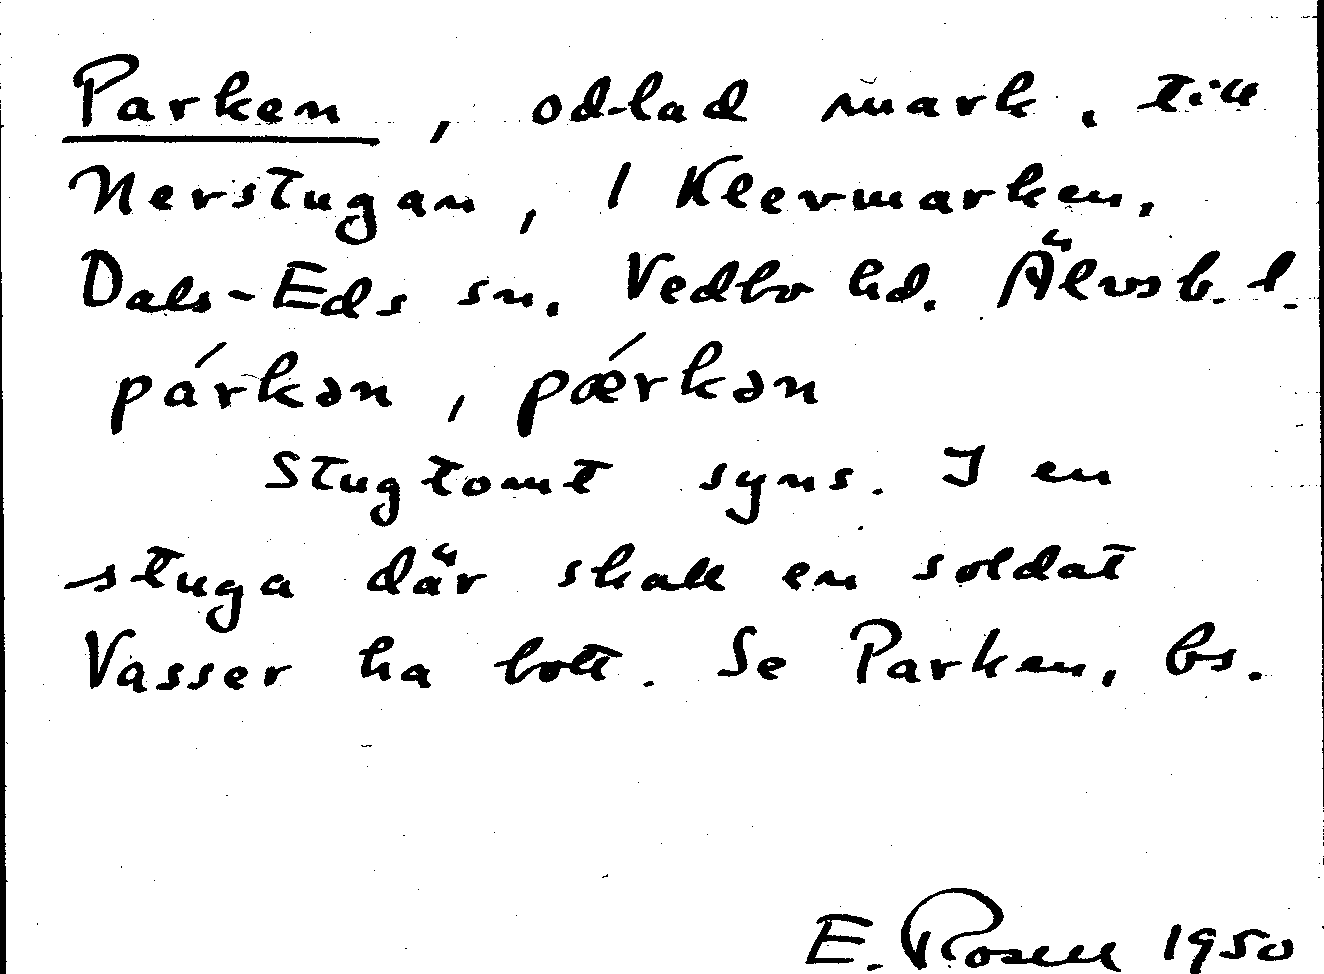 Parken, odlad mark, till
Nerstugan, 1 Klevmarken,
Dals-Eds sn. Vedbo hd. Älvsb. l.
párkən, pǽrkən
Stugtomt syns. I en
stuga där skall en soldat
Vasser ha bott. Se Parken, bs.
E. Rosell 1950